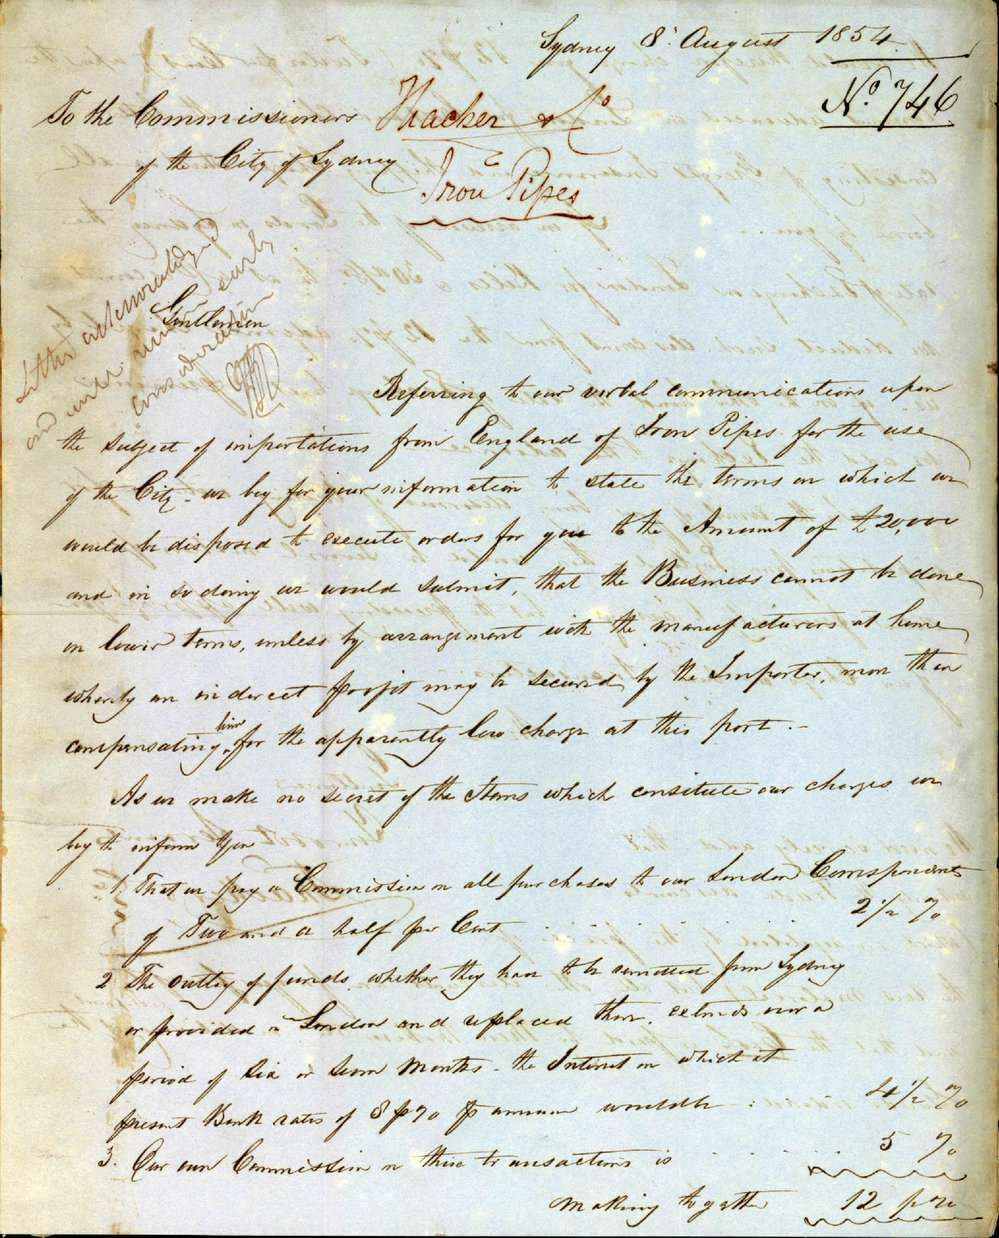 Sydney 8 August 1854.
No. 746
To the Commissioners
of the City of Sydney
Thacker & Co
Iron Pipes
Letter acknowledged
and will
early
consideration
Gentlemen
Referring to our verbal communications upon
the subject of importations from England of Iron Pipes for the use
of the City - we beg for your information to state the terms on which we
would be disposed to execute orders for you to the Amount of £20,000
and in so doing we would submit, that the Business cannot be done
on lower terms, unless by arrangement with the manufacturers at home
whereby an indirect profit may be secured by the Importer, more than
compensating him for the apparently low charge at this port. -
As we make no secret of the Items which consitute our charges we
beg to inform you
1. That we pay a Commission on all purchases to our London Correspondents
of Two and a half per Cent . . . . 2 1/2 %
2 The outlay of funds, whether they have to be remitted from Sydney
or provided in London and replaced there, extends over a
period of Six or Seven Months - the Interest on which at
present Bank rates of 8 p% p annum would be : 4 1/2 %
3. Our own Commission on these transactions is . . . . . . 5 %
Making together 12 p%